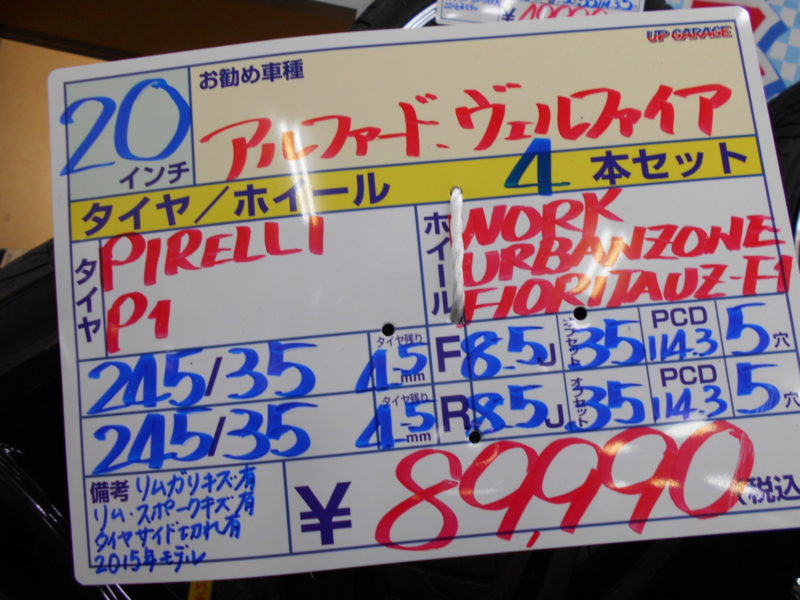 UP GARAGE
20インチ
お勧め車種
アルファード、ヴェルファイア
タイヤ/ホイール 4本セット
タイヤ
PIRELLI
P1
ホイール
WORK
URBANZONE
FIORITAUZ-F1
245/35 タイヤ残り 4.5mm F 8.5J オフセット 35 PCD 114.3 5穴
245/35 タイヤ残り 4.5mm R 8.5J オフセット 35 PCD 114.3 5穴
備考 リムガリキズ有
リム・スポークキズ有
タイヤサイド切れ有
2015年モデル
¥89,990(税込